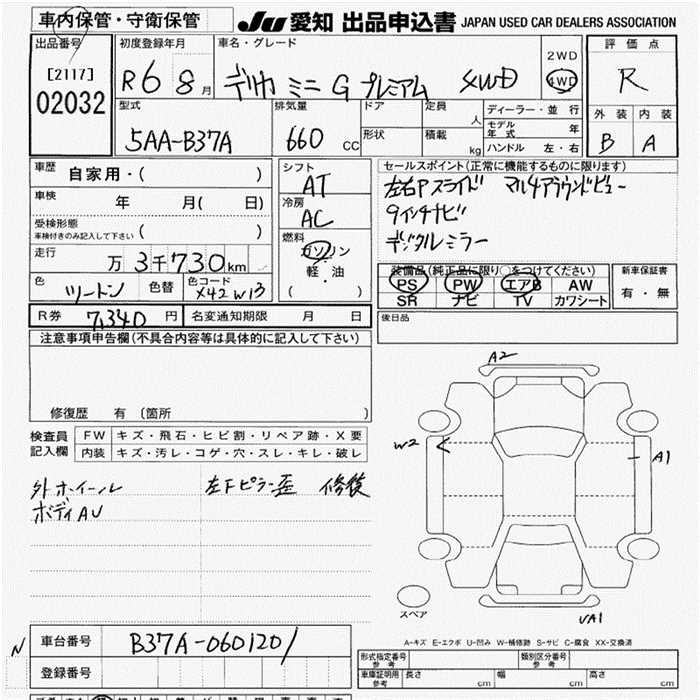 車内保管・守衛保管
JU 愛知 出品申込書 JAPAN USED CAR DEALERS ASSOCIATION
出品番号
[2117]
02032
初度登録年月
R6 8月
車名・グレード
デリカ ミニ G プレミアム 4WD
2WD
4WD
評価点
R
外装 内装
B A
型式
5AA-B37A
排気量
660 CC
ドア
形状
定員 人
積載 kg
ディーラー・並行
モデル年式 年
ハンドル 左・右
車歴 自家用・( )
車検 年 月( 日)
受検形態
車検付きのみ記入して下さい ( )
走行
万 3千730km
色 ツートン
色替
色コード
X42 W13
シフト
AT
冷房
AC
燃料
ガソリン
軽・油
( )
セールスポイント(正常に機能するものに限ります)
左右Pスライド マルチアラウンドビュー
9インチナビ
デジタルミラー
装備品(純正品に限り○をつけてください)
PS PW エアB AW
SR ナビ TV カワシート
新車保証書
有・無
R券 7,340円
名変通知期限 月 日
後日品
注意事項申告欄(不具合内容等は具体的に記入して下さい)
修復歴 有 (箇所 )
検査員
記入欄
FW キズ・飛石・ヒビ割・リペア跡・X要
内装 キズ・汚レ・コゲ・穴・スレ・キレ・破レ
外ホイール 左下ピラー歪 修復
ボディAU
A2
W2
A1
UA1
スペア
A-キズ E-エクボ U-凹み W-補修跡 S-サビ C-腐食 XX-交換済
N
車台番号 B37A-0601201
登録番号
形式指定番号
参考
類別区分番号
参考
車庫証明用
参考
長さ cm
幅 cm
高さ cm